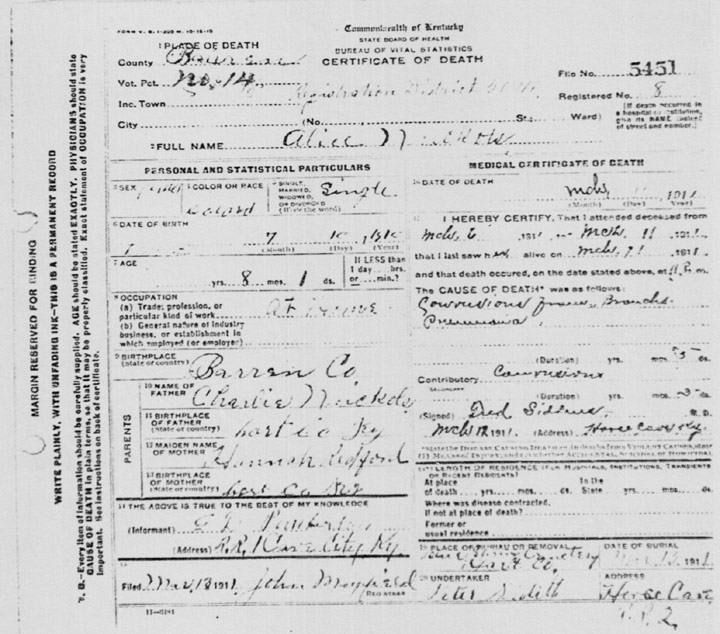 FORM V. S. 1-200 M. 10-15-10
Commonwealth of Kentucky
STATE BOARD OF HEALTH
BUREAU OF VITAL STATISTICS
CERTIFICATE OF DEATH
1 PLACE OF DEATH
County Barren
Vot. Pct. No. 14
Registration District
File No. 5451
Inc. Town
Registered No. 8
City (No. St.; Ward)
[If death occurred in a hospital or institution, give its NAME instead of street and number.]
2 FULL NAME Alice Nuckols
PERSONAL AND STATISTICAL PARTICULARS
3 SEX
4 COLOR OR RACE
Colored
5 SINGLE, MARRIED, WIDOWED, OR DIVORCED (Write the word)
Single
6 DATE OF BIRTH
7 10 1910
(Month) (Day) (Year)
7 AGE
yrs. 8 mos. 1 ds.
If LESS than 1 day ... hrs. or ... min.?
8 OCCUPATION
(a) Trade, profession, or particular kind of work At Home
(b) General nature of industry business, or establishment in which employed (or employer)
9 BIRTHPLACE (State or country)
Barren Co
PARENTS
10 NAME OF FATHER Charlie Nuckols
11 BIRTHPLACE OF FATHER (State or country) Hart Co Ky
12 MAIDEN NAME OF MOTHER Hannah
13 BIRTHPLACE OF MOTHER (State or country) Hart Co Ky
14 THE ABOVE IS TRUE TO THE BEST OF MY KNOWLEDGE
(Informant)
(Address) R.R. 1 Cave City Ky
15
Filed Mar, 13 1911 John Mayfield
REGISTRAR
11-6181
MEDICAL CERTIFICATE OF DEATH
16 DATE OF DEATH
Mch 11, 1911
(Month) (Day) (Year)
17 I HEREBY CERTIFY, That I attended deceased from
Mch, 6 1911 to Mch, 11 1911
that I last saw her alive on Mch, 1911
and that death occured, on the date stated above, at m.
The CAUSE OF DEATH* was as follows:
Convulsions from Broncho
Pneumonia
(Duration) yrs. mos. 5 ds.
Contributory Convulsions
SECONDARY
(Duration) yrs. mos. ds.
(Signed) M. D.
Mch 12, 1911 (Address) Horse Cave Ky
18 LENGTH OF RESIDENCE (FOR HOSPITALS, INSTITUTIONS, TRANSIENTS OR RECENT RESIDENTS)
At place of death yrs. mos. ds. In the State yrs. mos. ds.
Where was disease contracted, If not at place of death?
Former or usual residence
19 PLACE OF BURIAL OR REMOVAL
Cemetery
Hart Co,
DATE OF BURIAL
1911
20 UNDERTAKER
Peter
ADDRESS
Horse Cave
R. R. 2
MARGIN RESERVED FOR BINDING
WRITE PLAINLY, WITH UNFADING INK—THIS IS A PERMANENT RECORD
N. B.—Every item of information should be carefully supplied. AGE should be stated EXACTLY. PHYSICIANS should state
CAUSE OF DEATH in plain terms, so that it may be properly classified. Exact statement of OCCUPATION is very
important. See instructions on back of certificate.